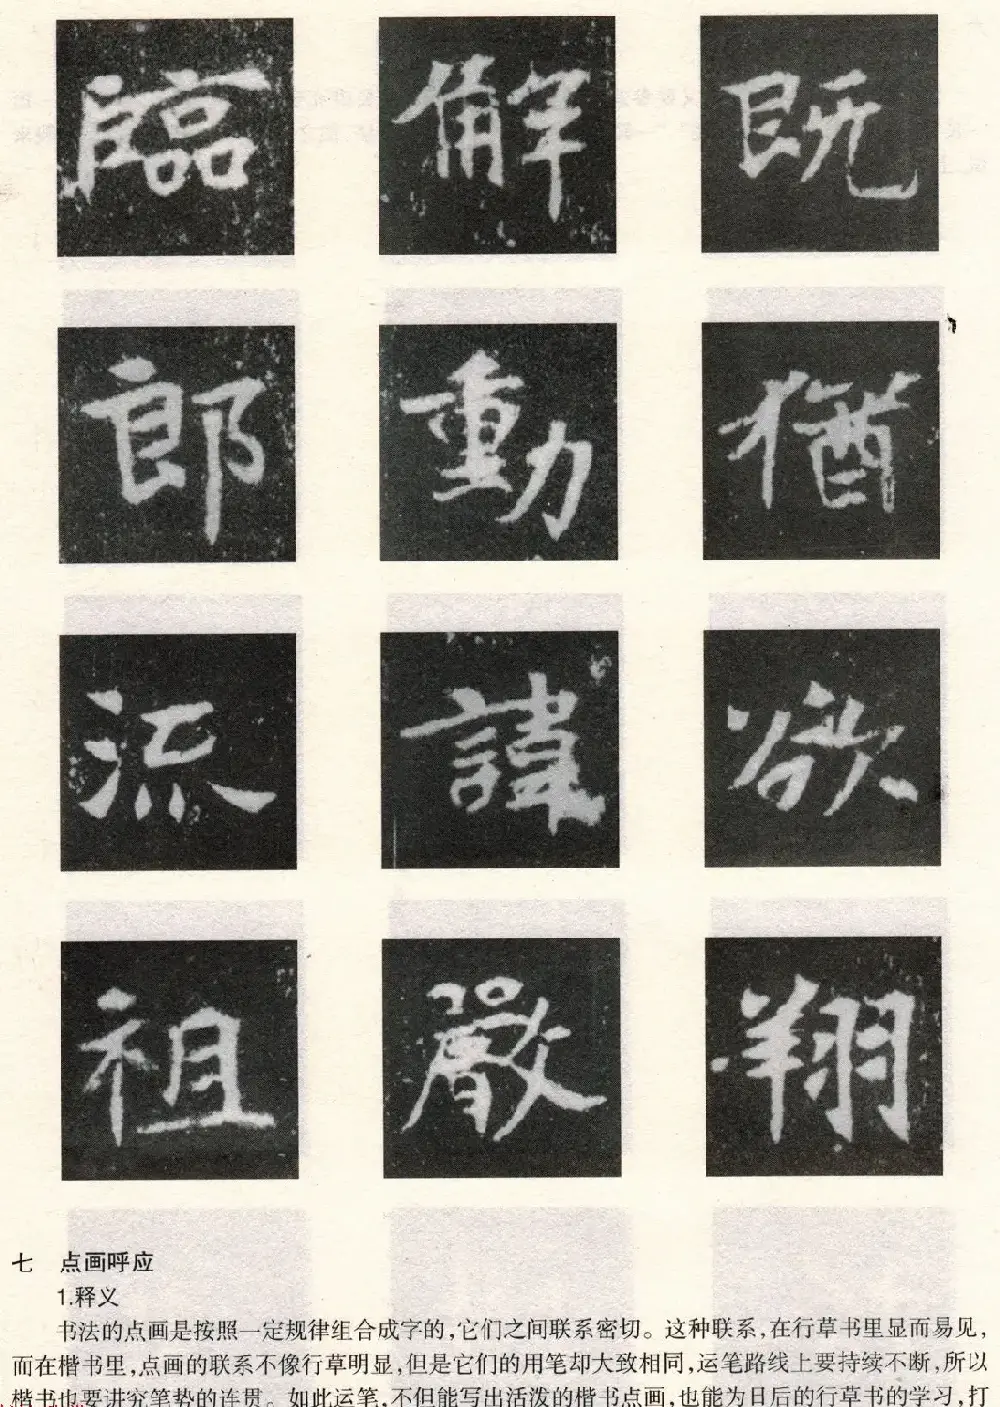 臨 解 既
郎 動 猶
流 諱 欲
祖 嚴 翔
七 点画呼应
1.释义
书法的点画是按照一定规律组合成字的,它们之间联系密切。这种联系,在行草书里显而易见,
而在楷书里,点画的联系不像行草明显,但是它们的用笔却大致相同,运笔路线上要持续不断,所以
楷书也要讲究笔势的连贯。如此运笔,不但能写出活泼的楷书点画,也能为日后的行草书的学习,打